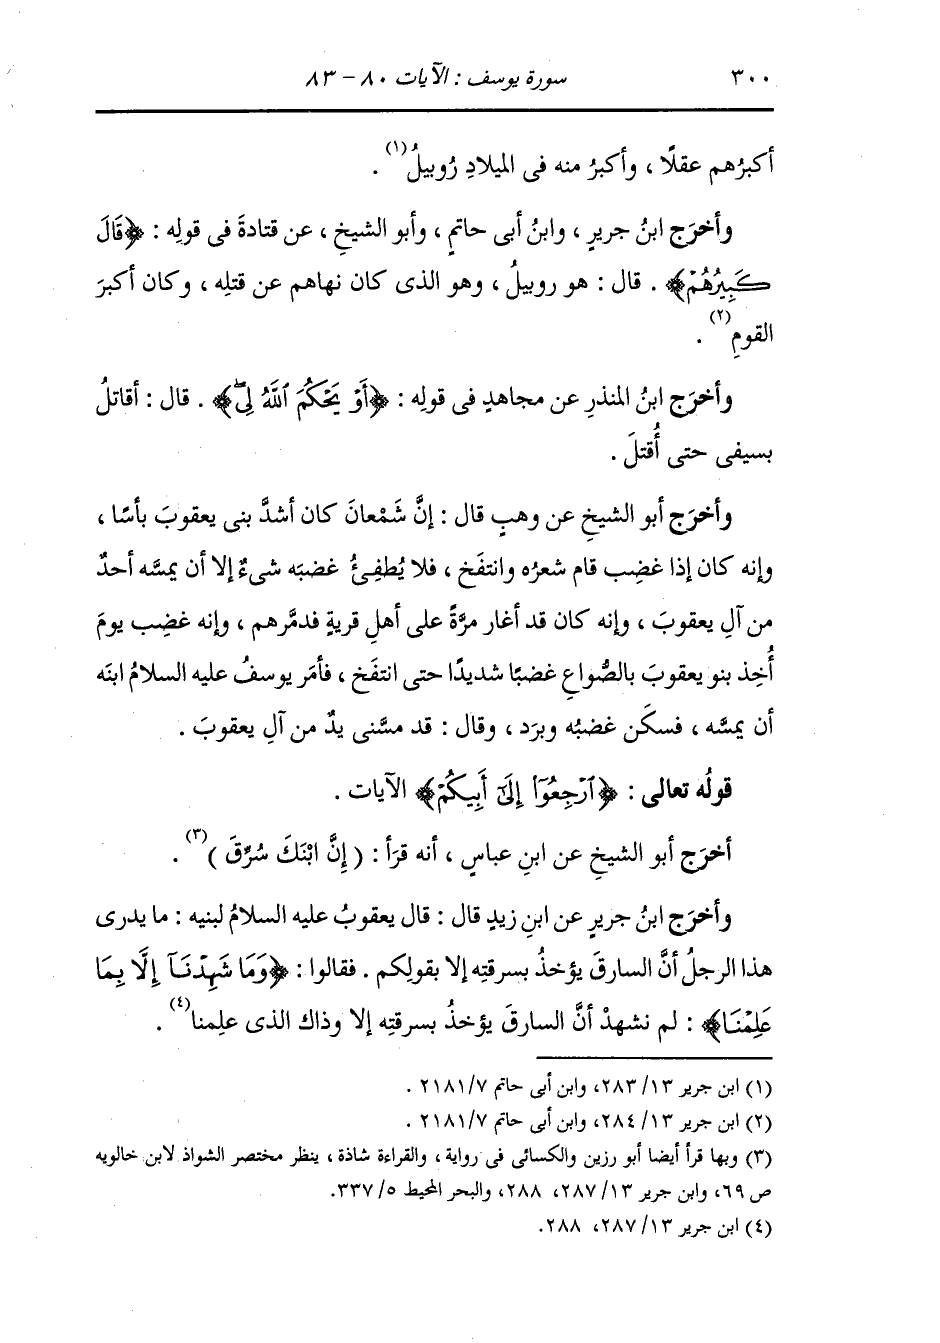 ٣٠٠ سورة يوسف : الآيات ٨٠ - ٨٣
أكبرُهم عقلًا ، وأكبرُ منه فى الميلادِ رُوبيلُ(١) .
وأخرَج ابنُ جريرٍ ، وابنُ أبى حاتمٍ ، وأبو الشيخِ ، عن قتادةَ فى قولِه : ﴿قَالَ
كَبِيرُهُمْ﴾ . قال : هو روبيلُ ، وهو الذى كان نهاهم عن قتلِه ، وكان أكبرَ
القومِ(٢) .
وأخرَج ابنُ المنذرِ عن مجاهدٍ فى قولِه : ﴿أَوْ يَحْكُمَ ٱللَّهُ لِىۖ﴾ . قال : أقاتلُ
بسيفى حتى أُقتلَ .
وأخرَج أبو الشيخِ عن وهبٍ قال : إنَّ شَمْعانَ كان أشدَّ بنى يعقوبَ بأسًا ،
وإنه كان إذا غضِب قام شعرُه وانتفَخ ، فلا يُطفِئُ غضبَه شىءٌ إلا أن يمسَّه أحدٌ
من آلِ يعقوبَ ، وإنه كان قد أغار مرَّةً على أهلِ قريةٍ فدمَّرهم ، وإنه غضِب يومَ
أُخِذ بنو يعقوبَ بالصُّواعِ غضبًا شديدًا حتى انتفَخ ، فأمَر يوسفُ عليه السلامُ ابنَه
أن يمسَّه ، فسكَن غضبُه وبرَد ، وقال : قد مسَّنى يدٌ من آلِ يعقوبَ .
قولُه تعالى : ﴿ٱرْجِعُوٓا۟ إِلَىٰٓ أَبِيكُمْ﴾ الآيات .
أخرَج أبو الشيخِ عن ابنِ عباسٍ ، أنه قرَأ : ( إِنَّ ابْنَكَ سُرِّقَ )(٣) .
وأخرَج ابنُ جريرٍ عن ابنِ زيدٍ قال : قال يعقوبُ عليه السلامُ لبنيه : ما يدرى
هذا الرجلُ أنَّ السارقَ يؤخذُ بسرقتِه إلا بقولِكم . فقالوا : ﴿وَمَا شَهِدْنَآ إِلَّا بِمَا
عَلِمْنَا﴾ : لم نشهدْ أنَّ السارقَ يؤخذُ بسرقتِه إلا وذاك الذى علِمنا(٤) .
(١) ابن جرير ١٣/ ٢٨٣، وابن أبى حاتم ٧/ ٢١٨١ .
(٢) ابن جرير ١٣/ ٢٨٤، وابن أبى حاتم ٧/ ٢١٨١ .
(٣) وبها قرأ أيضا أبو رزين والكسائى فى رواية ، والقراءة شاذة ، ينظر مختصر الشواذ لابن خالويه
ص ٦٩، وابن جرير ١٣/ ٢٨٧، ٢٨٨، والبحر المحيط ٥/ ٣٣٧.
(٤) ابن جرير ١٣/ ٢٨٧، ٢٨٨.